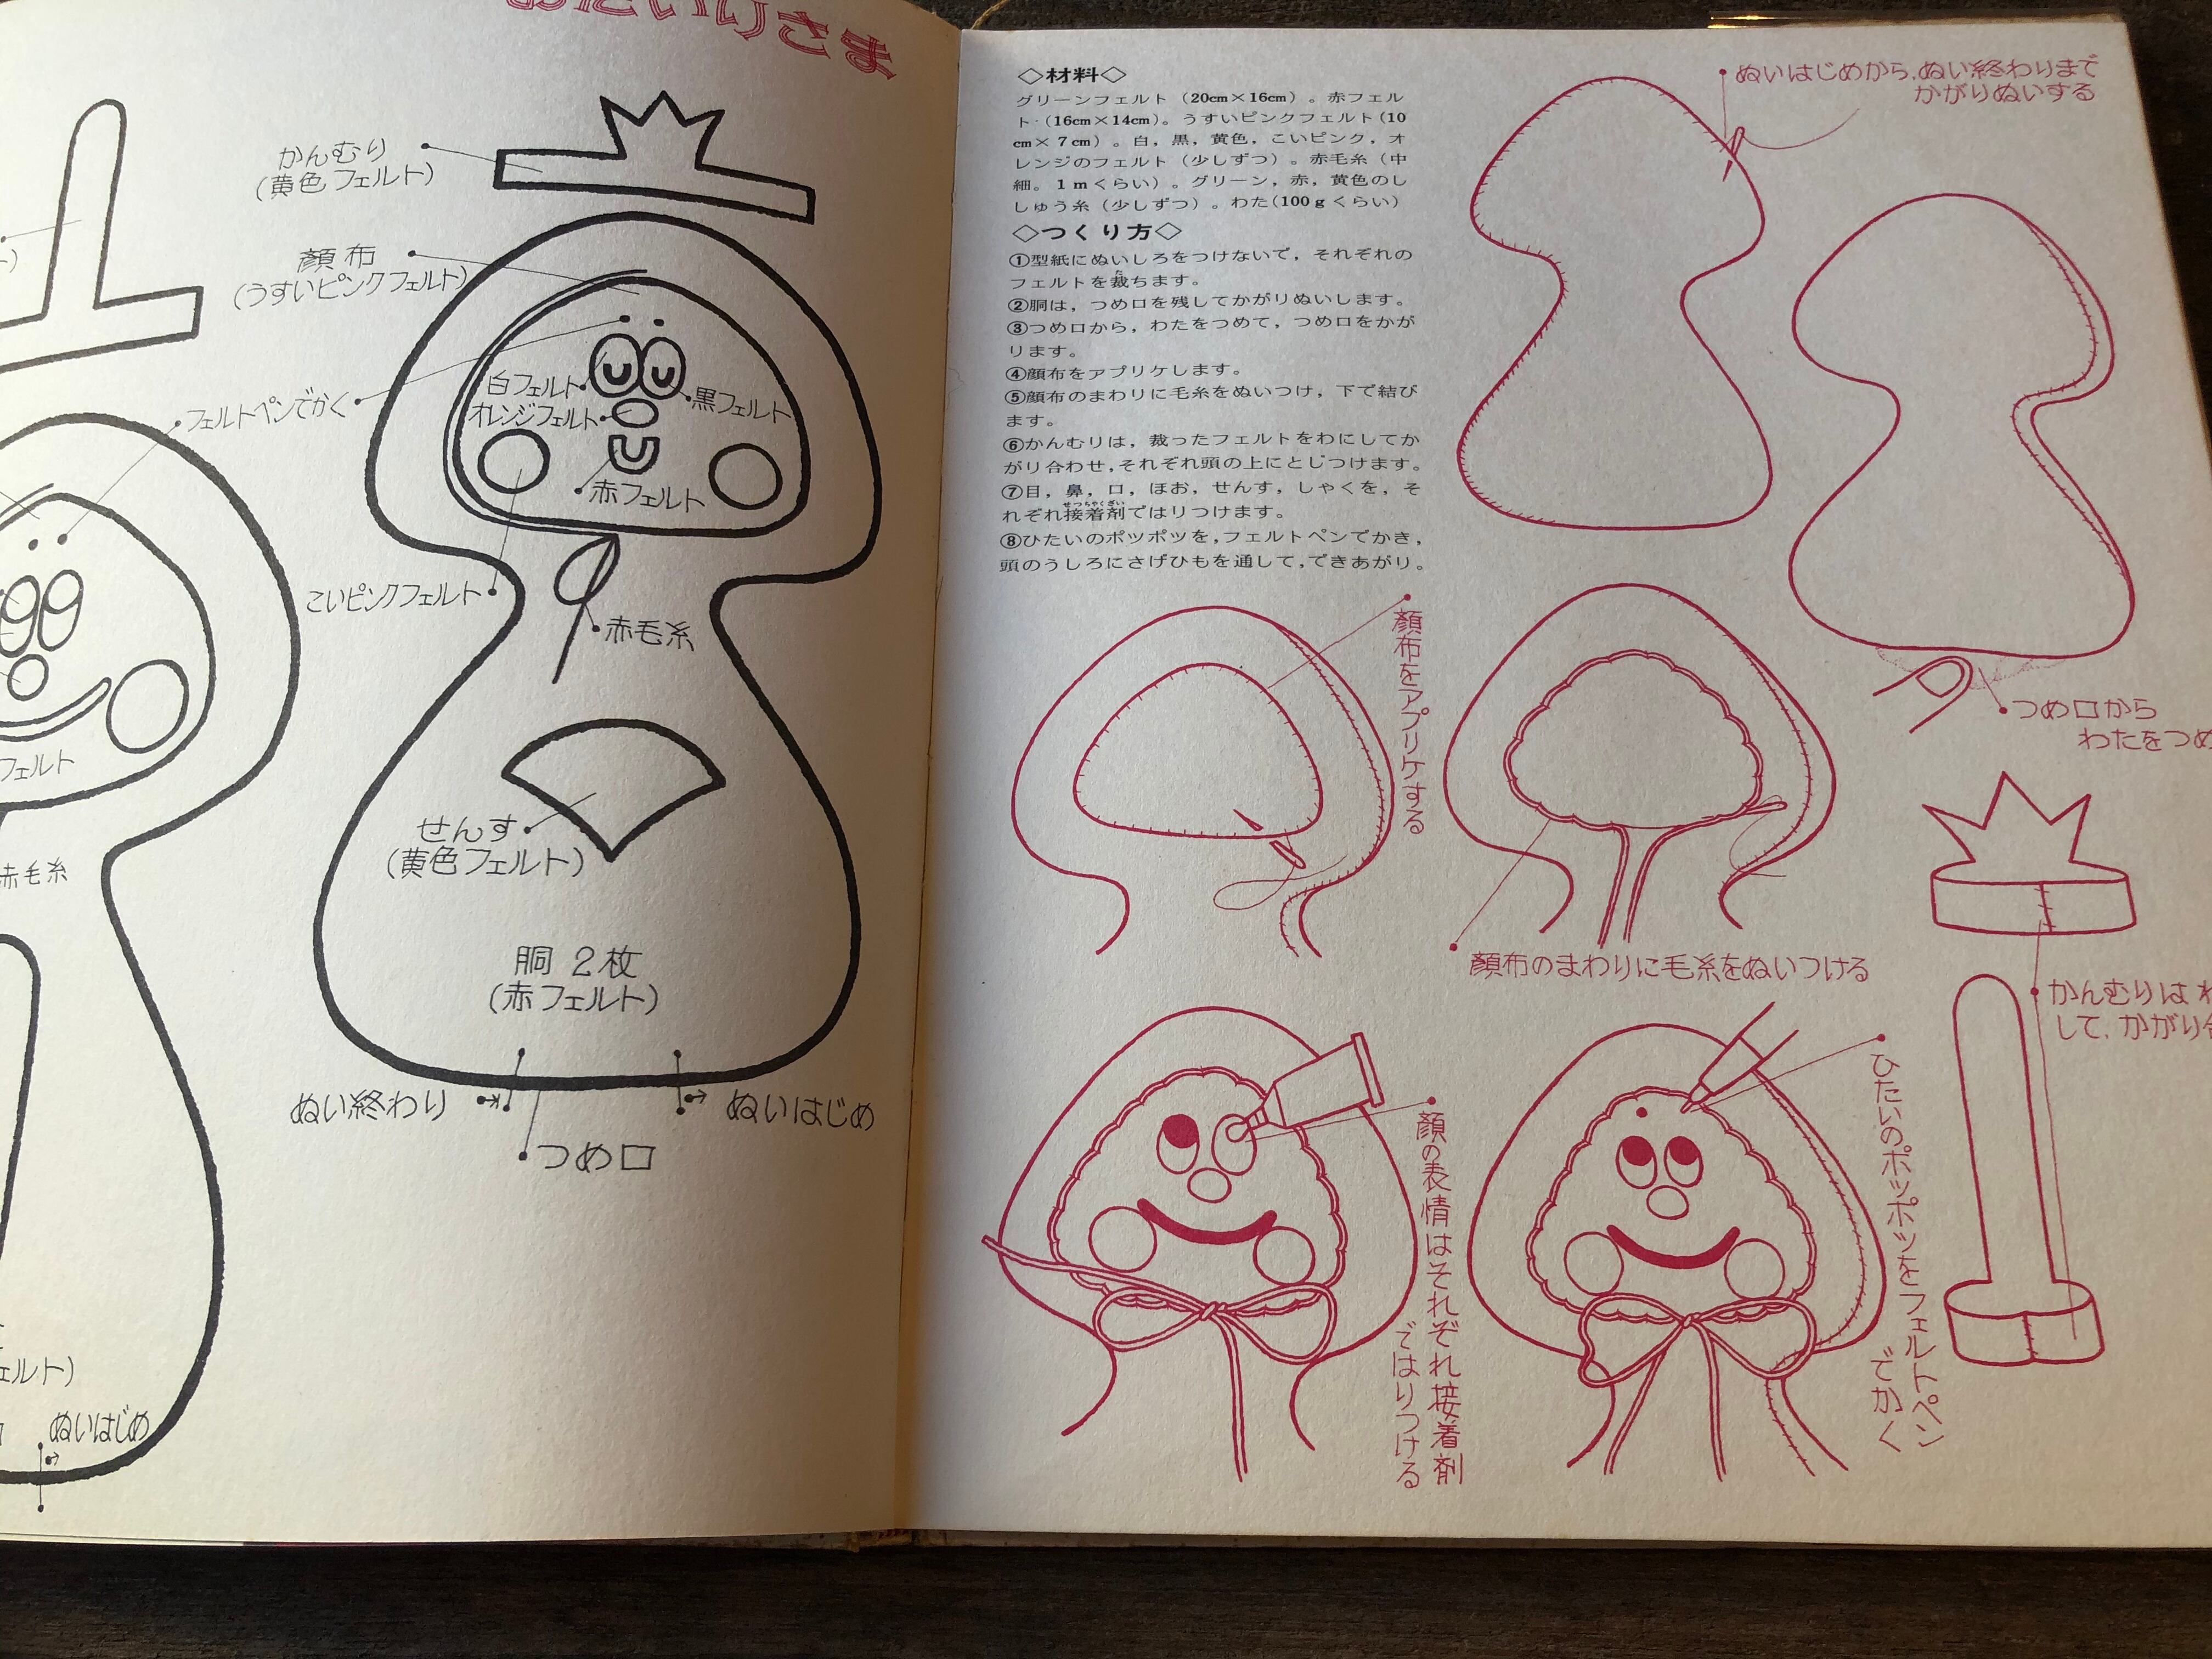 おだいりさま
かんむり
(黄色フェルト)
顔布
(うすいピンクフェルト)
フェルトペンでかく
白フェルト
オレンジフェルト
黒フェルト
赤フェルト
こいピンクフェルト
赤毛糸
せんす
(黄色フェルト)
胴 2枚
(赤フェルト)
ぬい終わり
ぬいはじめ
つめ口
フェルト
赤毛糸
ェルト)
ぬいはじめ
◇材料◇
グリーンフェルト（20cm×16cm）。赤フェル
ト・(16cm×14cm)。うすいピンクフェルト(10
cm×7cm）。白，黒，黄色，こいピンク，オ
レンジのフェルト（少しずつ）。赤毛糸（中
細。1mくらい）。グリーン，赤，黄色のし
しゅう糸（少しずつ）。わた(100gくらい）
◇つくり方◇
①型紙にぬいしろをつけないで，それぞれの
フェルトを裁ちます。
②胴は，つめ口を残してかがりぬいします。
③つめ口から，わたをつめて，つめ口をかが
ります。
④顔布をアプリケします。
⑤顔布のまわりに毛糸をぬいつけ，下で結び
ます。
⑥かんむりは，裁ったフェルトをわにしてか
がり合わせ,それぞれ頭の上にとじつけます。
⑦目，鼻，口，ほお，せんす，しゃくを，そ
れぞれ接着剤ではりつけます。
⑧ひたいのポツポツを,フェルトペンでかき，
頭のうしろにさげひもを通して,できあがり。
ぬいはじめから,ぬい終わりまで
かがりぬいする
つめ口から
わたをつめ
顔布をアプリケする
顔布のまわりに毛糸をぬいつける
かんむりは
して,かがり
顔の表情はそれぞれ接着剤
ではりつける
ひたいのポツポツをフェルトペン
でかく